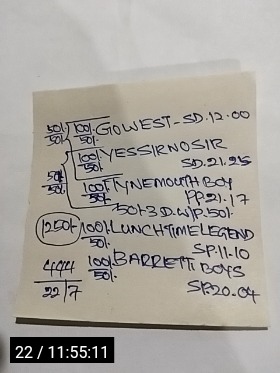 50/- 100/- GOWEST - SD.12.00
50/- 50/-
100/- YESSIRNOSIR
50/- SD.21.25
50/- 100/- TYNEMOUTH BOY
50/- 50/- PP.21.17
50/- 3D.W/P.50/-
1250/- 100/- LUNCHTIMELEGEND
50/- SP.11.10
494 100/- BARRETTI BOYS
22/7 50/- SP.20.04
22 / 11:55:11